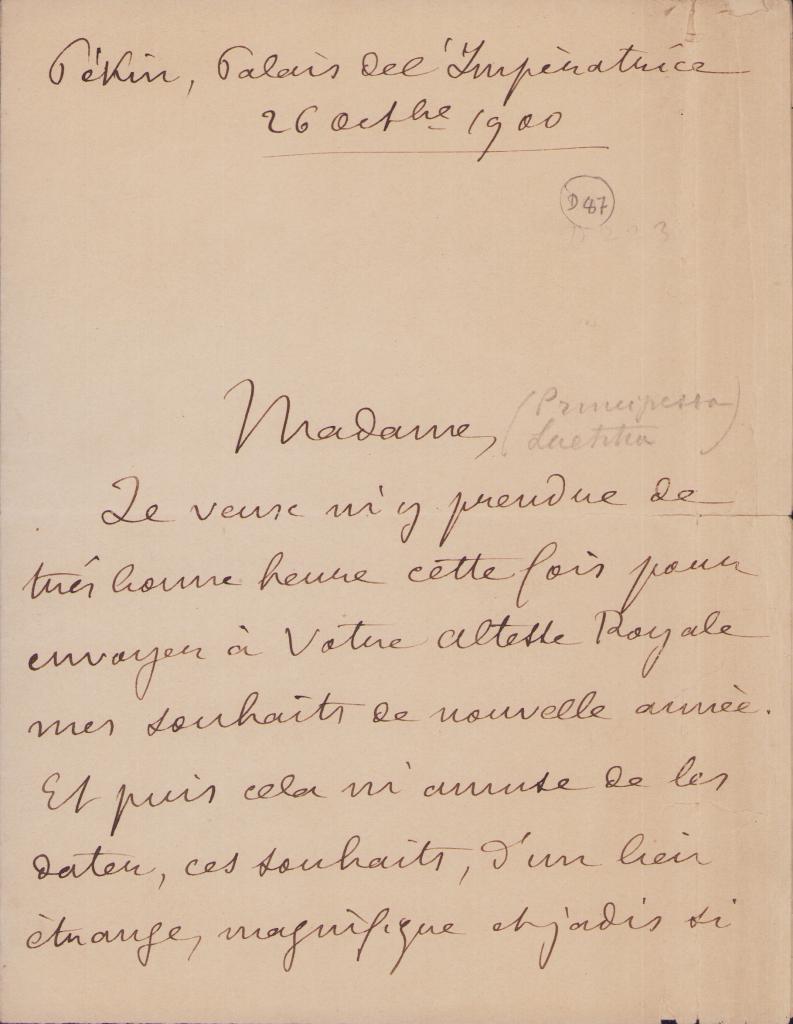 Pékin, Palais de l'Impératrice
26 Octbre 1900
D 47
Madame,
(Principessa
Laetitia)
Je veux m'y prendre de
très bonne heure cette fois pour
envoyer à Votre Altesse Royale
mes souhaits de nouvelle année.
Et puis cela m'amuse de les
dater, ces souhaits, d'un lieu
étrange, magnifique et jadis si